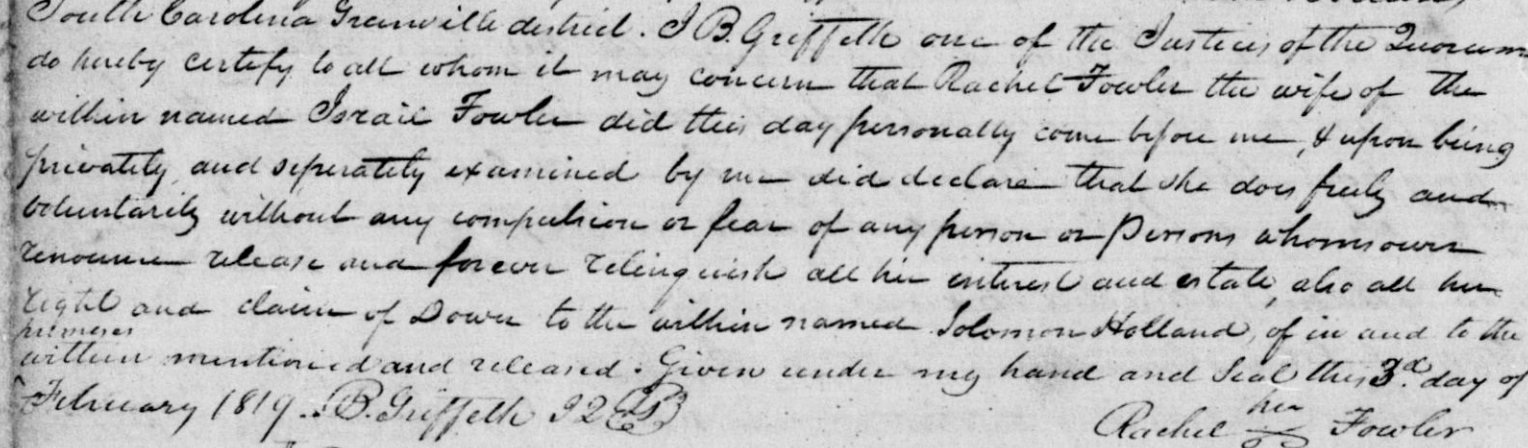 South Carolina Granville district. I B. Griffeth one of the Justices of the Quorum
do hereby certify to all whom it may concern that Rachel Fowler the wife of the
within named Israil Fowler did this day personally come before me, & upon being
privately and seperately examined by me did declare that she does freely and
voluntarily without any compulsion or fear of any person or Persons whomsoever
renounce release and forever relinquish all her interest and estate, also all her
right and claim of Dower to the within named Solomon Holland, of in and to the
premises
within mentioned and released. Given under my hand and Seal this 3d. day of
February 1819. B. Griffeth
her
Rachel Fowler